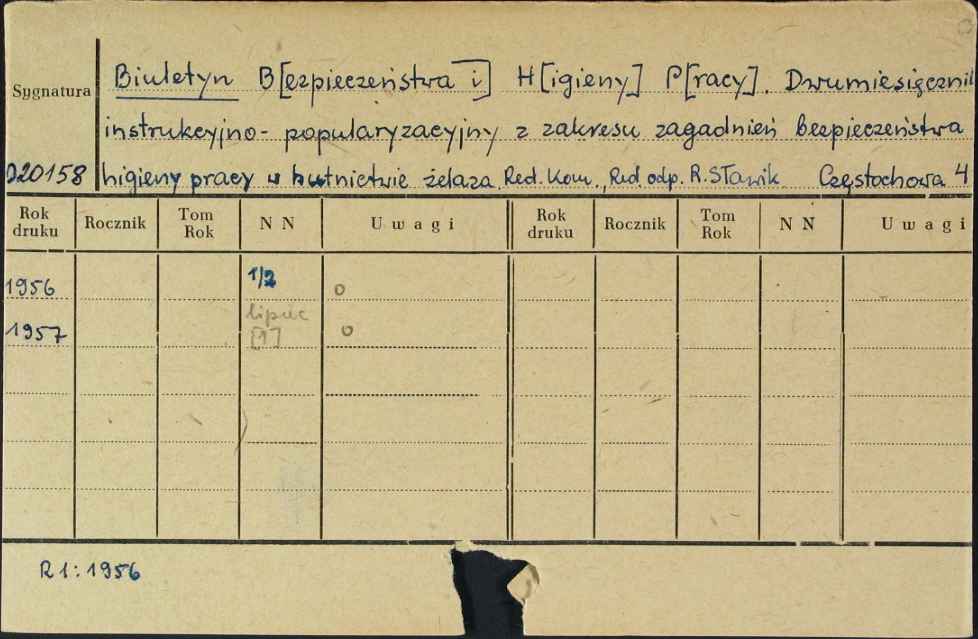 Sygnatura
Biuletyn B[ezpieczeństwa i] H[igieny] P[racy]. Dwumiesięcznik
instrukcyjno-popularyzacyjny z zakresu zagadnień bezpieczeństwa
020158 higieny pracy w hutnictwie żelaza. Red. Kom., Red. odp. R. Stawik. Częstochowa 4
Rok druku Rocznik Tom Rok NN Uwagi Rok druku Rocznik Tom Rok NN Uwagi
1956 1/2 o
lipiec
1957 [1] o
R 1: 1956